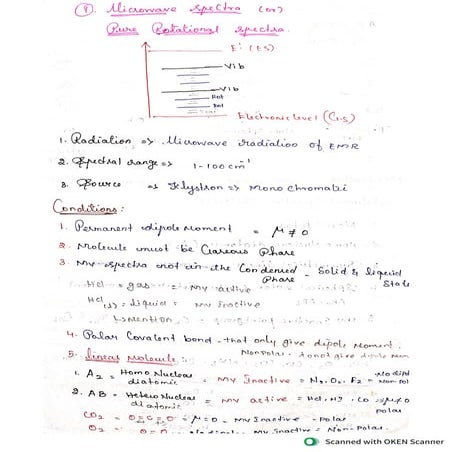 ① Microwave spectra (or)
Pure Rotational spectra.
E: (ES)
Vib
Vib
Rot
Rot
Electronic level (G.S)
1. Radiation => Microwave radiation of EMR
2. Spectral range => 1-100 cm⁻¹
3. Source => Klystron => Mono chromati
Conditions:
1. Permanent dipole moment = μ≠0
2. Molecule must be Gaseous Phase
3. MW spectra not in the Condensed Phase - Solid & liquid State
HCl = gas = MW active
HCl = liquid = MW Inactive
4. Polar Covalent bond - that only give dipole moment.
Non polar - do not give dipole mom
5. linear molecule:
1. A₂ = Homo Nuclear diatomic = MW Inactive = N₂, O₂, F₂ = Non-pol
2. AB = Hetero Nuclear diatomic = MW active = HCl, HF, CO = μ≠0 polar
CO₂ = O=C=O = μ=0 - MW Inactive - Polar.
O₂ = O=O MW Inactive - Non.
Scanned with OKEN Scanner